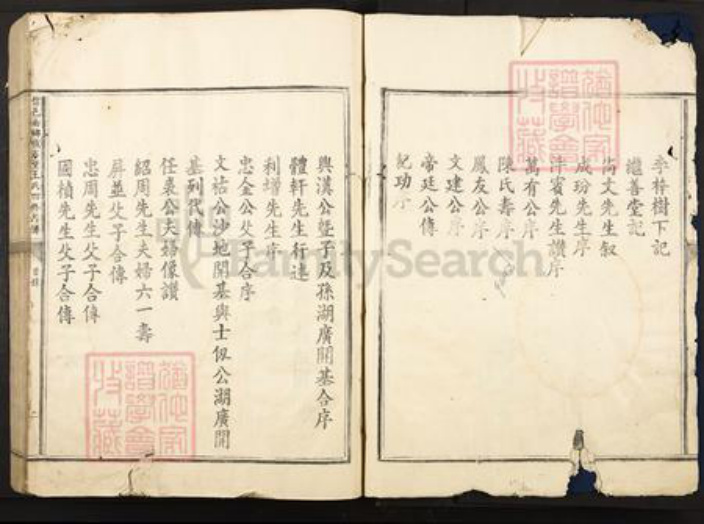 李梓樹下記
繼善堂記
尚文先生叙
成玢先生序
先生讚序
萬有公序
陳氏壽序
鳳友公序
文建公序
帝廷公傳
紀功
興漢公暨子及孫湖廣開基合序
體軒先生行述
利增先生序
忠金公父子合序
文祜公沙地開基與士佀公湖廣開
基列代傳
任裹公夫婦像讚
紹周先生夫婦六一壽
屏並父子合傳
忠周先生父子合傳
國楨先生父子合傳
FamilySearch
譜學會
收藏
譜學會
收藏